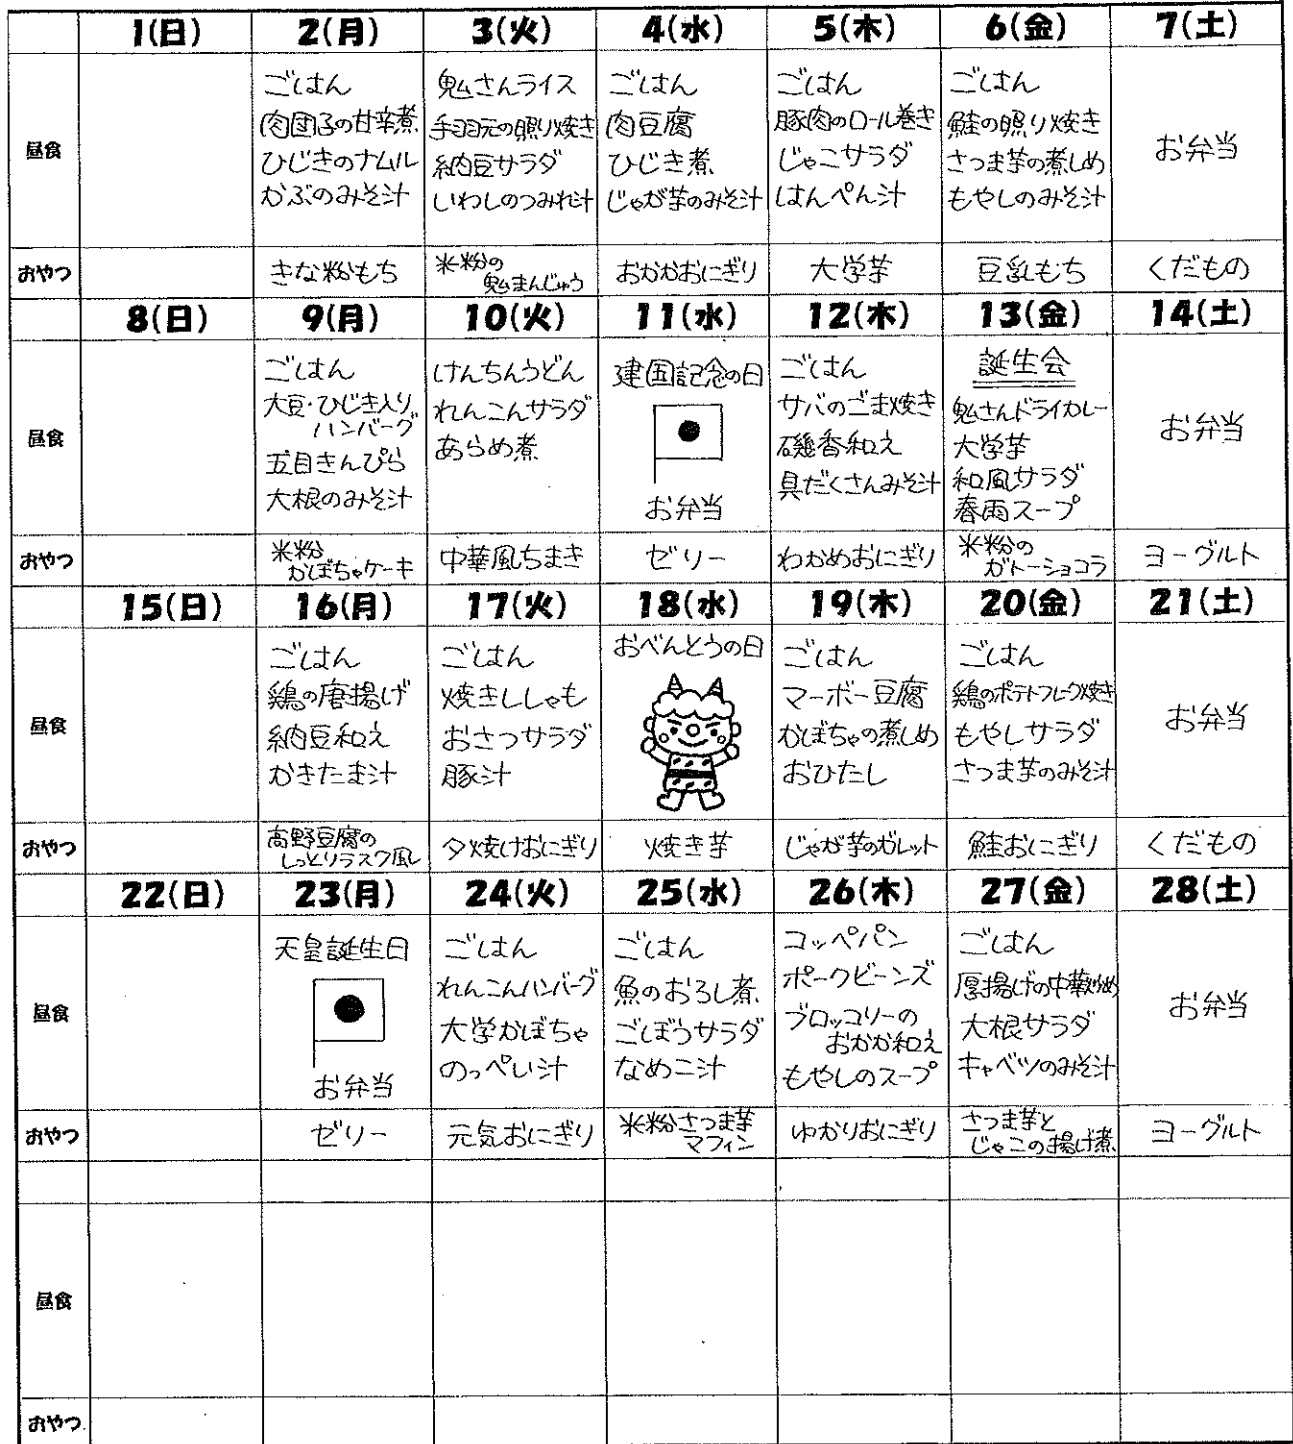 1(日) 2(月) 3(火) 4(水) 5(木) 6(金) 7(土)
昼食
ごはん
肉団子の甘辛煮
ひじきのナムル
かぶのみそ汁
鬼さんライス
手羽元の照り焼き
納豆サラダ
いわしのつみれ汁
ごはん
肉豆腐
ひじき煮
じゃが芋のみそ汁
ごはん
豚肉のロール巻き
じゃこサラダ
はんぺん汁
ごはん
鮭の照り焼き
さつま芋の煮しめ
もやしのみそ汁
お弁当
おやつ
きな粉もち
米粉の
鬼まんじゅう
おかかおにぎり
大学芋
豆乳もち
くだもの
8(日) 9(月) 10(火) 11(水) 12(木) 13(金) 14(土)
昼食
ごはん
大豆・ひじき入り
ハンバーグ
五目きんぴら
大根のみそ汁
けんちんうどん
れんこんサラダ
あらめ煮
建国記念の日
お弁当
ごはん
サバのごま焼き
磯香和え
具だくさんみそ汁
誕生会
鬼さんドライカレー
大学芋
和風サラダ
春雨スープ
お弁当
おやつ
米粉
かぼちゃケーキ
中華風ちまき
ゼリー
わかめおにぎり
米粉の
ガトーショコラ
ヨーグルト
15(日) 16(月) 17(火) 18(水) 19(木) 20(金) 21(土)
昼食
ごはん
鶏の唐揚げ
納豆和え
かきたま汁
ごはん
焼きししゃも
おさつサラダ
豚汁
おべんとうの日
ごはん
マーボー豆腐
かぼちゃの煮しめ
おひたし
ごはん
鶏のポテトフレーク焼き
もやしサラダ
さつま芋のみそ汁
お弁当
おやつ
高野豆腐の
しっとりラスク風
夕焼けおにぎり
焼き芋
じゃが芋のガレット
鮭おにぎり
くだもの
22(日) 23(月) 24(火) 25(水) 26(木) 27(金) 28(土)
昼食
天皇誕生日
お弁当
ごはん
れんこんハンバーグ
大学かぼちゃ
のっぺい汁
ごはん
魚のおろし煮
ごぼうサラダ
なめこ汁
コッペパン
ポークビーンズ
ブロッコリーの
おかか和え
もやしのスープ
ごはん
厚揚げの中華炒め
大根サラダ
キャベツのみそ汁
お弁当
おやつ
ゼリー
元気おにぎり
米粉さつま芋
マフィン
ゆかりおにぎり
さつま芋と
じゃこの揚げ煮
ヨーグルト
昼食
おやつ